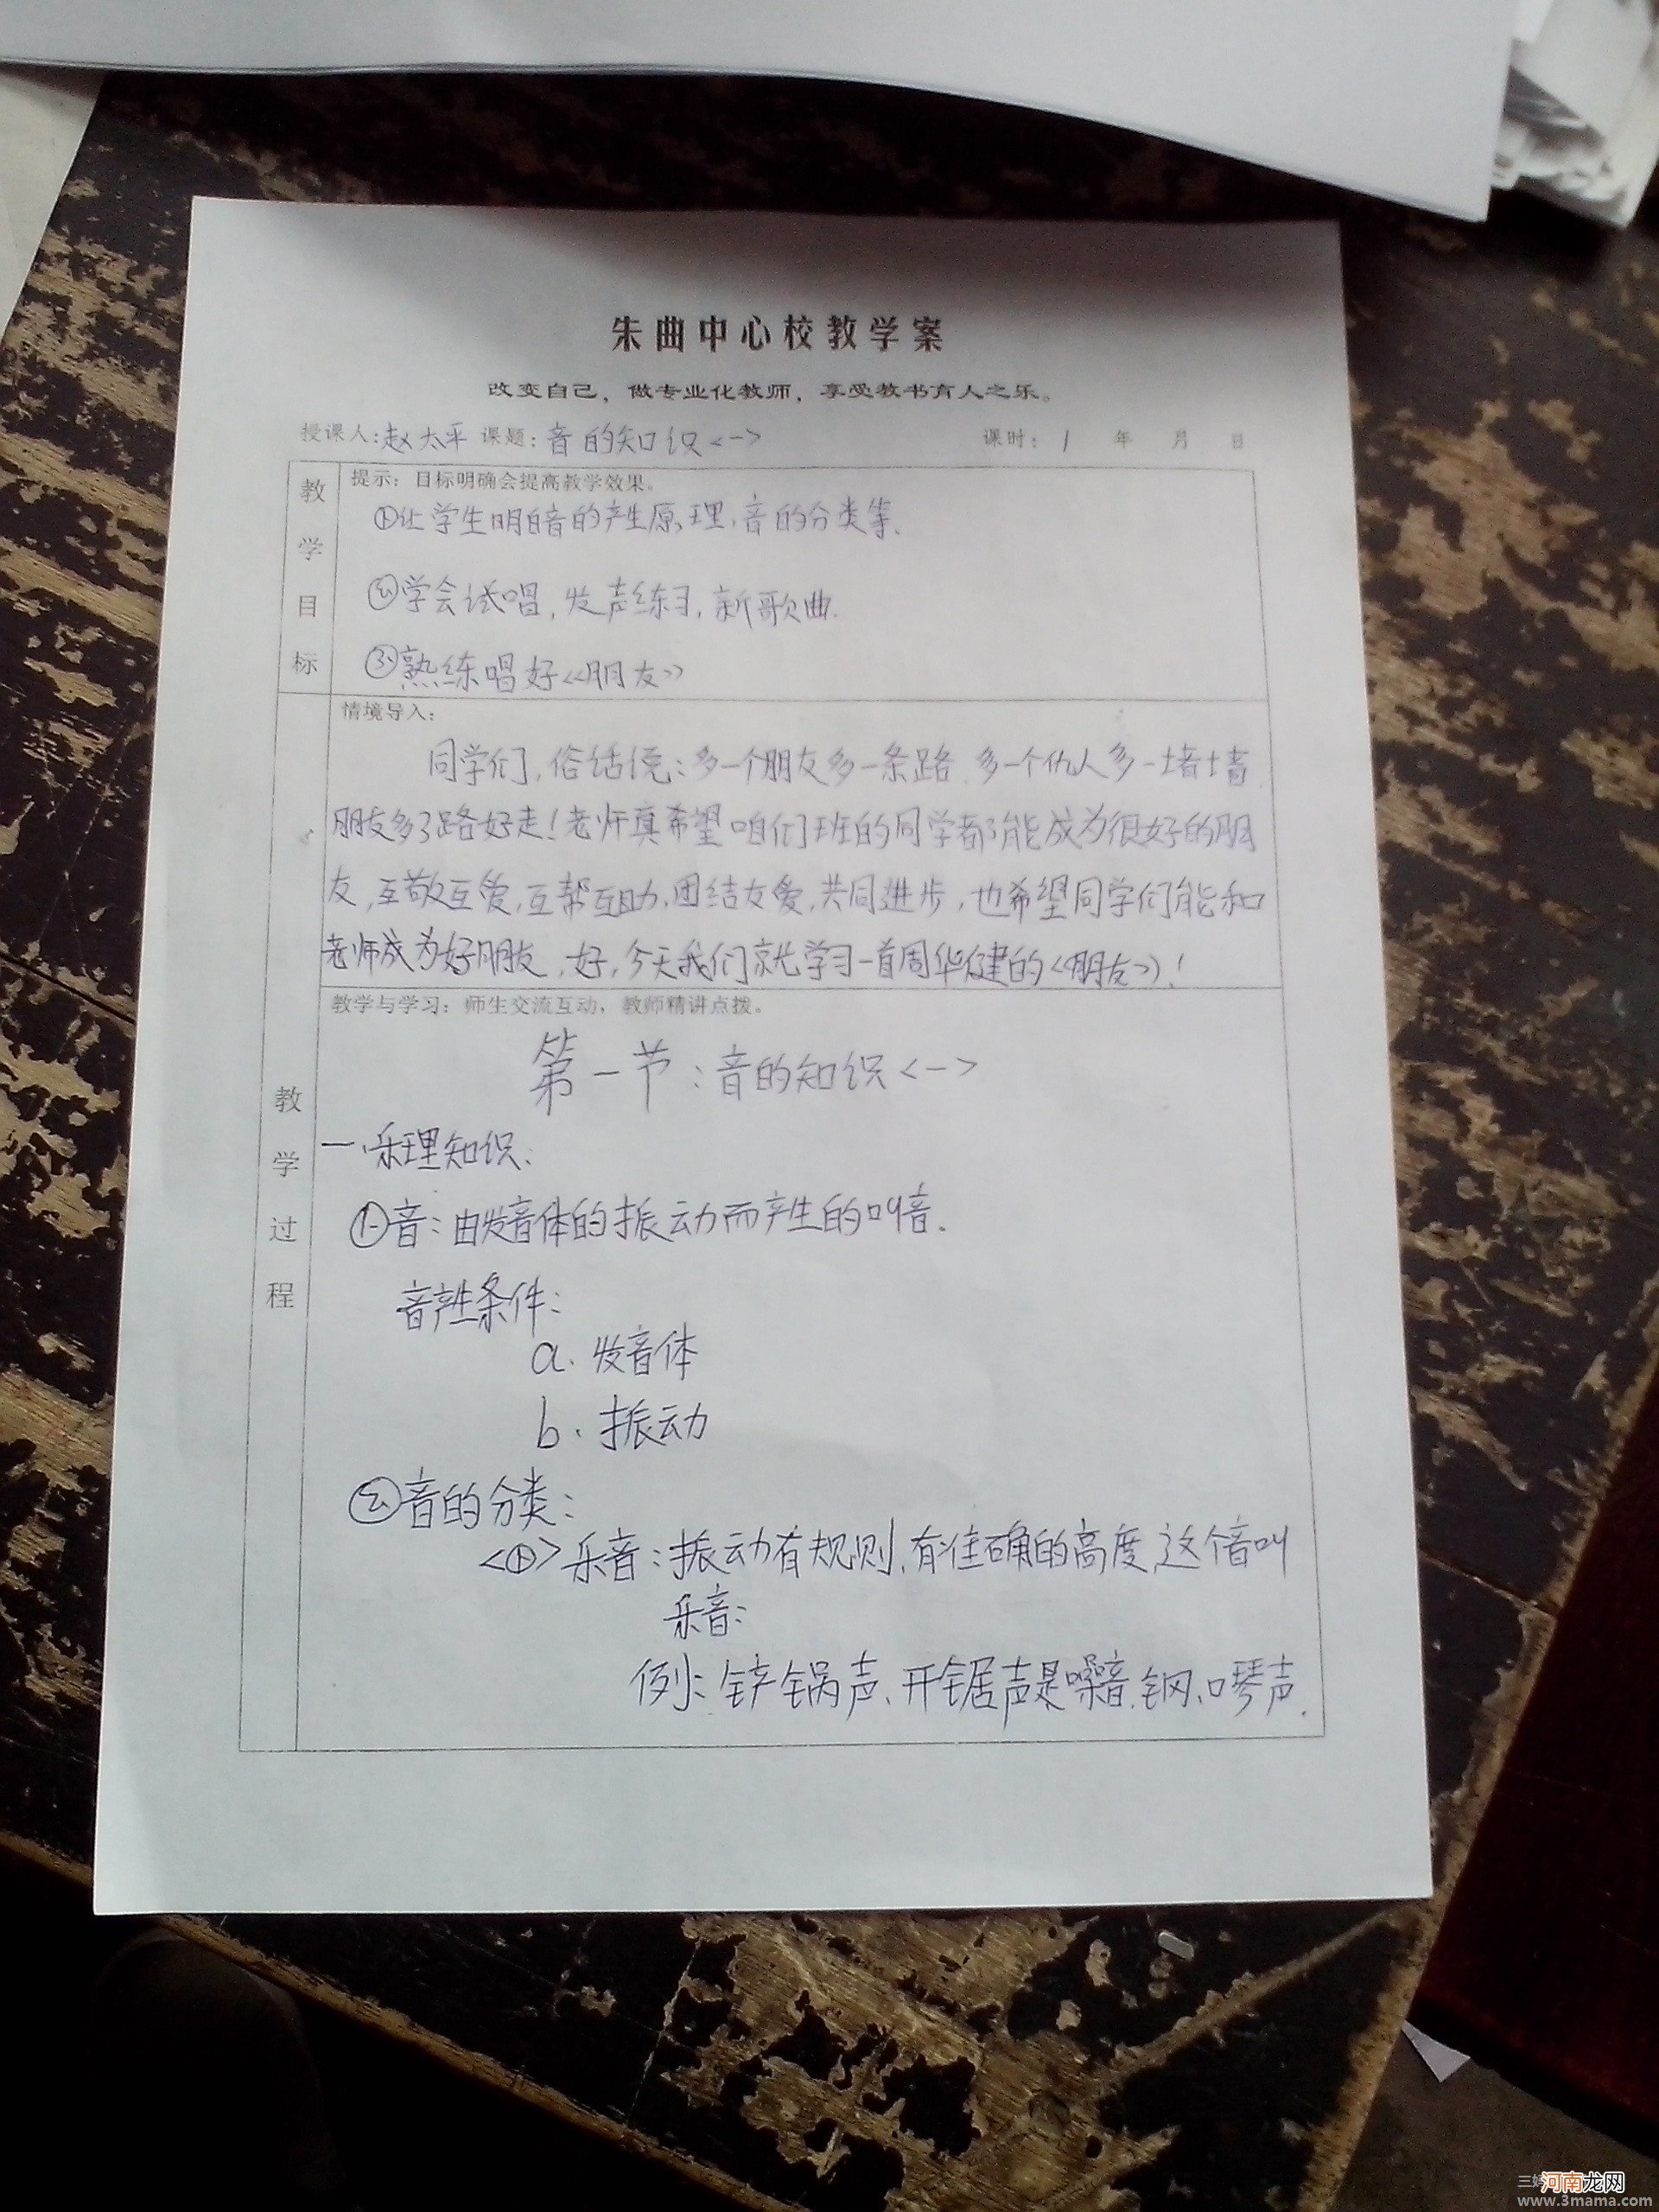 朱曲中心校教学案
改变自己，做专业化教师，享受教书育人之乐。
授课人：赵太平 课题：音的知识<一> 课时：1 年 月 日
教学目标
提示：目标明确会提高教学效果。
①让学生明白音的产生原理，音的分类等.
②学会试唱，发声练习，新歌曲.
③熟练唱好《朋友》
情境导入：
同学们，俗话说：多一个朋友多一条路，多一个仇人多一堵墙，
朋友多了路好走！老师真希望咱们班的同学都能成为很好的朋
友，互敬互爱，互帮互助，团结友爱，共同进步，也希望同学们能和
老师成为好朋友，好，今天我们就学习一首周华健的《朋友》！
教学过程
教学与学习：师生交流互动，教师精讲点拨。
第一节：音的知识<一>
一、乐理知识：
①音：由发音体的振动而产生的叫音.
音产生条件：
a. 发音体
b. 振动
②音的分类：
<①>乐音：振动有规则，有准确的高度，这个音叫
乐音：
例：铲锅声、开锯声是噪音，钢、口琴声.
河南龙网
www.3mama.com